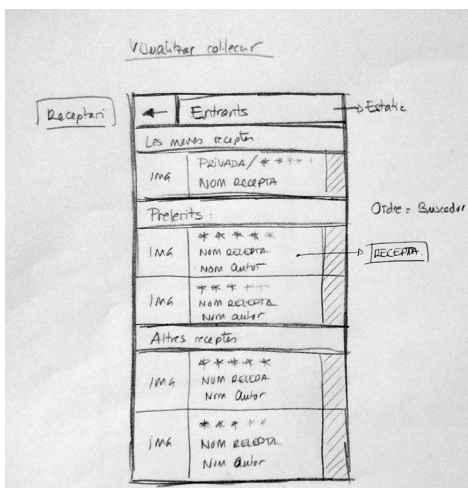 Visualitzar
Receptari
← Entrants → Estatic
Les meves receptes
IMG
PRIVADA/ * * * * *
NOM RECEPTA
Preferits:
Ordre = Buscador
IMG
* * * * *
NOM RECEPTA
Nom autor
→ RECEPTA.
IMG
* * * * *
NOM RECEPTA
Nom autor
Altres receptes
IMG
* * * * *
NOM RECEPTA
Nom autor
IMG
* * * * *
NOM RECEPTA
Nom autor